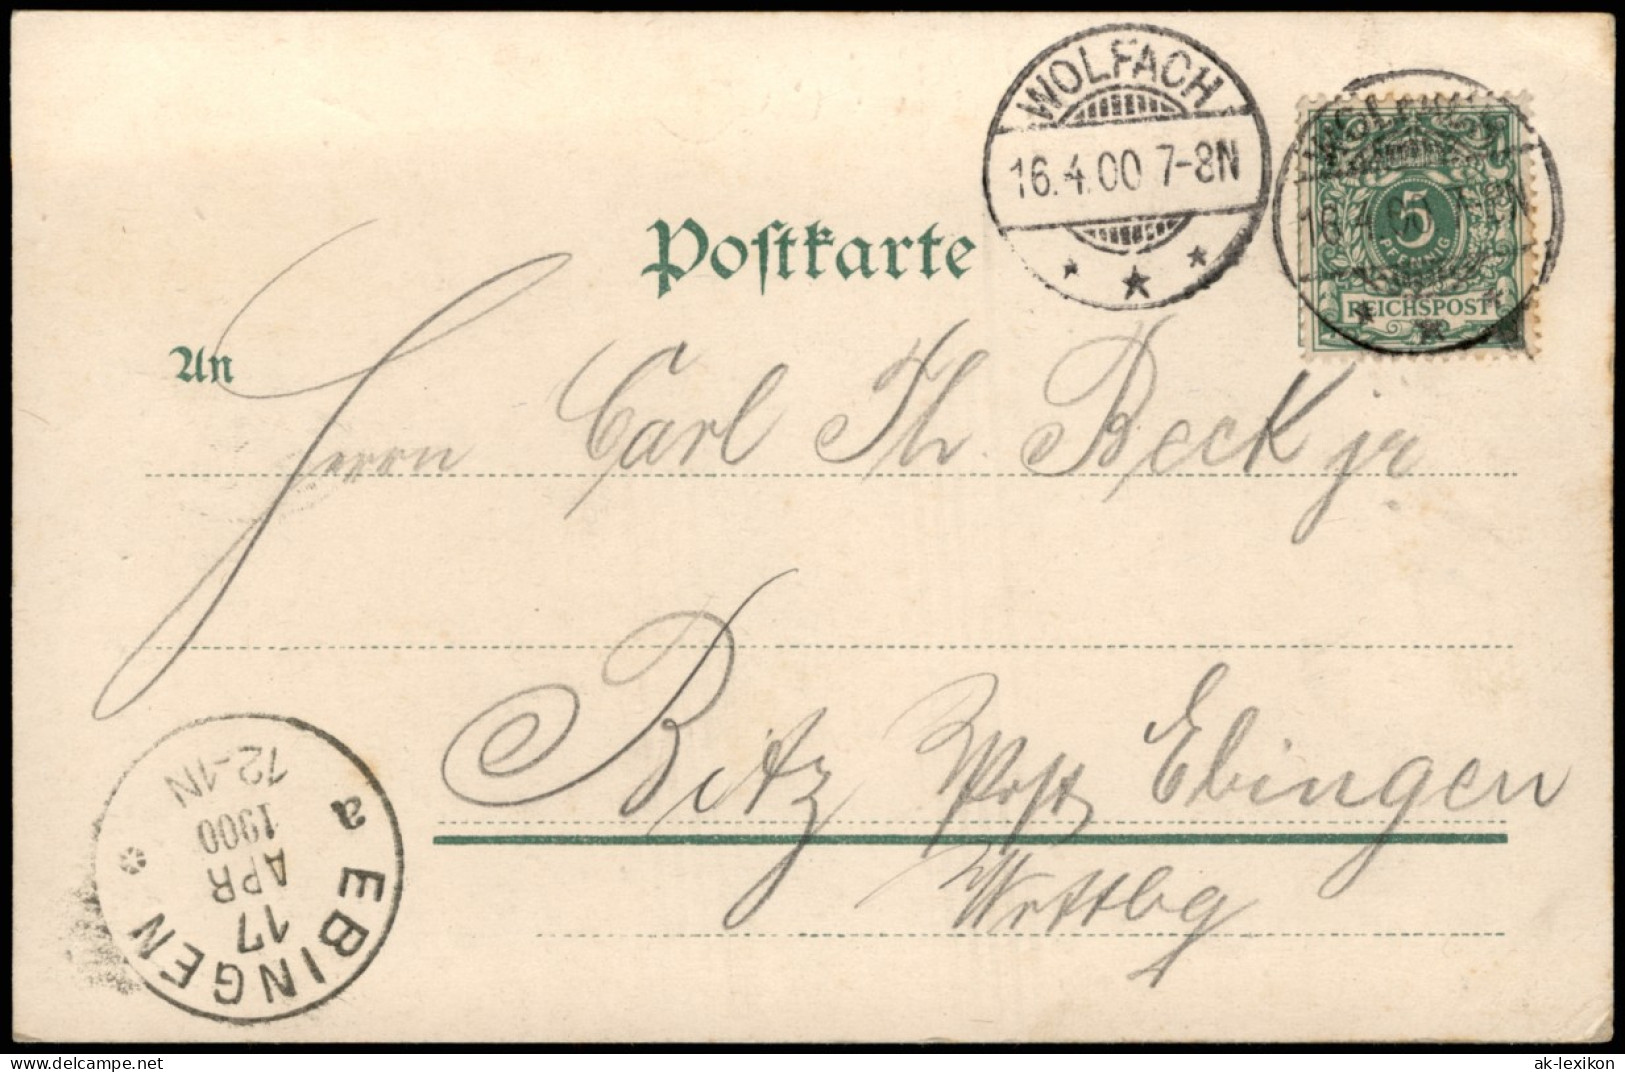 WOLFACH
16.4.00 7-8N
WOLFACH
16.4.00 7-8N
5
PFENNIG
REICHSPOST
Postkarte
An
Herrn Carl Th Beck jr
Bitz Post Ebingen
Wrttbg
a EBINGEN
17
APR
1900
12-1N
www.delcampe.net
ak-lexikon